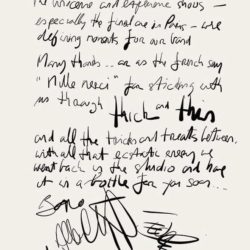 the welcome and explosive shows –
especially the final one in Paris – are
defining moments for our band
Many thanks .. or as the french say
"Mille merci" for sticking with
us through thick and thin
and all the tricks and treats between,
with all that ecstatic energy we
went back in the studio and have
it in a bottle for you soon...